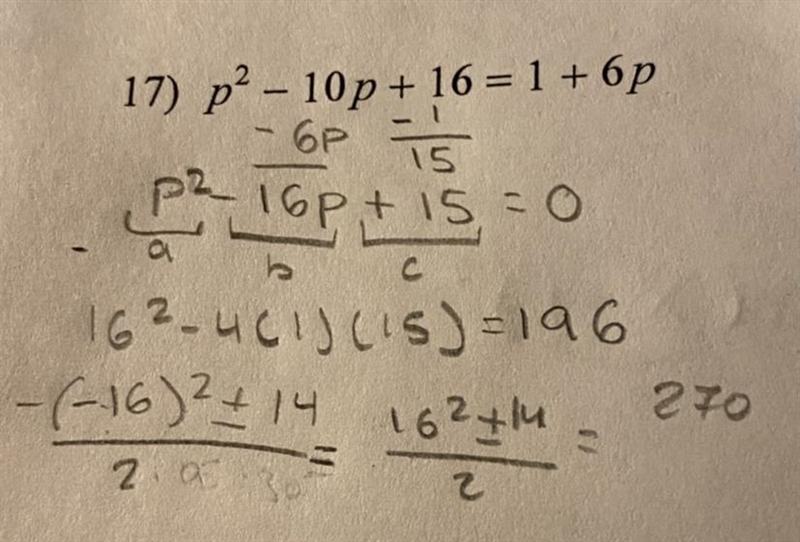 17) p² − 10p + 16 = 1 + 6p
- 6p - 1
15
p² - 16p + 15 = 0
- a b c
16² - 4(1)(15) = 196
-(-16)² ± 14 / 2 · a = 16² ± 14 / 2 = 270